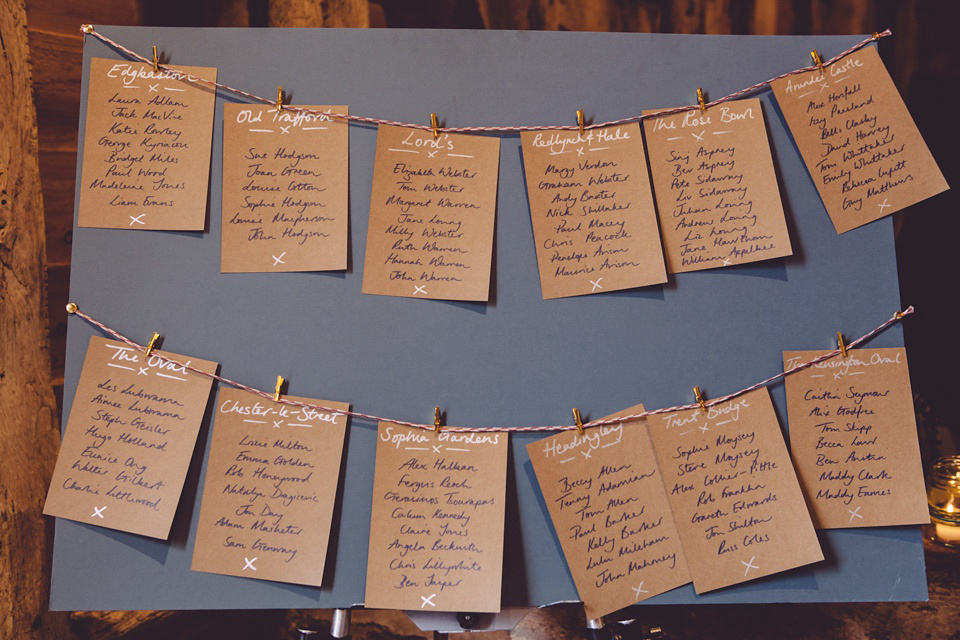 Edgbaston
x
Laura Adlam
Jack MacVie
Katie Rowley
George Kyriacou
Bridget Miles
Paul Wood
Madeleine Jones
Liam Evans
x
Old Trafford
x
Sue Hodgson
Joan Green
Louise Cotton
Sophie Hodgson
Lonnie Macpherson
John Hodgson
x
Lord's
x
Elizabeth Webster
Tom Webster
Margaret Warren
Jane Loung
Milly Webster
Ruth Warren
Hannah Warren
John Warren
x
Redlynch & Hale
x
Maggy Verdon
Graham Webster
Andy Baxter
Nick Shillaker
Paul Macey
Chris Peacock
Penelope Arison
Maurice Arison
x
The Rose Bowl
x
Asprey
Bev Asprey
Pete Sidaway
Liv Sidaway
Julian Loung
Andrew Loung
Liz Loung
Jane Hawthorn
William Appelbee
x
Arundel Castle
x
Alex Horsfall
Izzy Presland
Bella Clachy
David Harvey
Tom Whittaker
Emily Whittaker
Rebecca Lupitt
Guy Matthews
x
The Oval
x
Les Lubwama
Aimee Lubwama
Steph Geisler
Hugo Holland
Eunice Ong
Walter Gilbert
Charlie Littlewood
x
Chester-le-Street
x
Lizzie Melton
Emma Golden
Rob Honeywood
Natalya Dagicevic
Jon Day
Adam Masheter
Sam Grenway
x
Sophia Gardens
x
Alex Halkan
Fergus Roach
Gerasimos Tsourapas
Calum Kennedy
Claire Jones
Angela Beckwith
Chris Lillywhite
Ben Jasper
x
Headingley
x
Beccy Allen
Jenny Adamian
Tom Allen
Paul Barker
Kelly Barker
Lulu Mileham
John Mahoney
x
Trent Bridge
x
Sophie Moysey
Steve Moysey
Alex Collier-Pittle
Rob Franklin
Gareth Edwards
Jon Shilton
Russ Coles
x
The Kensington Oval
x
Caitlin Seymour
Abi Godfree
Tom Shipp
Becca Lawr
Ben Anstis
Maddy Clark
Maddy Eames
x